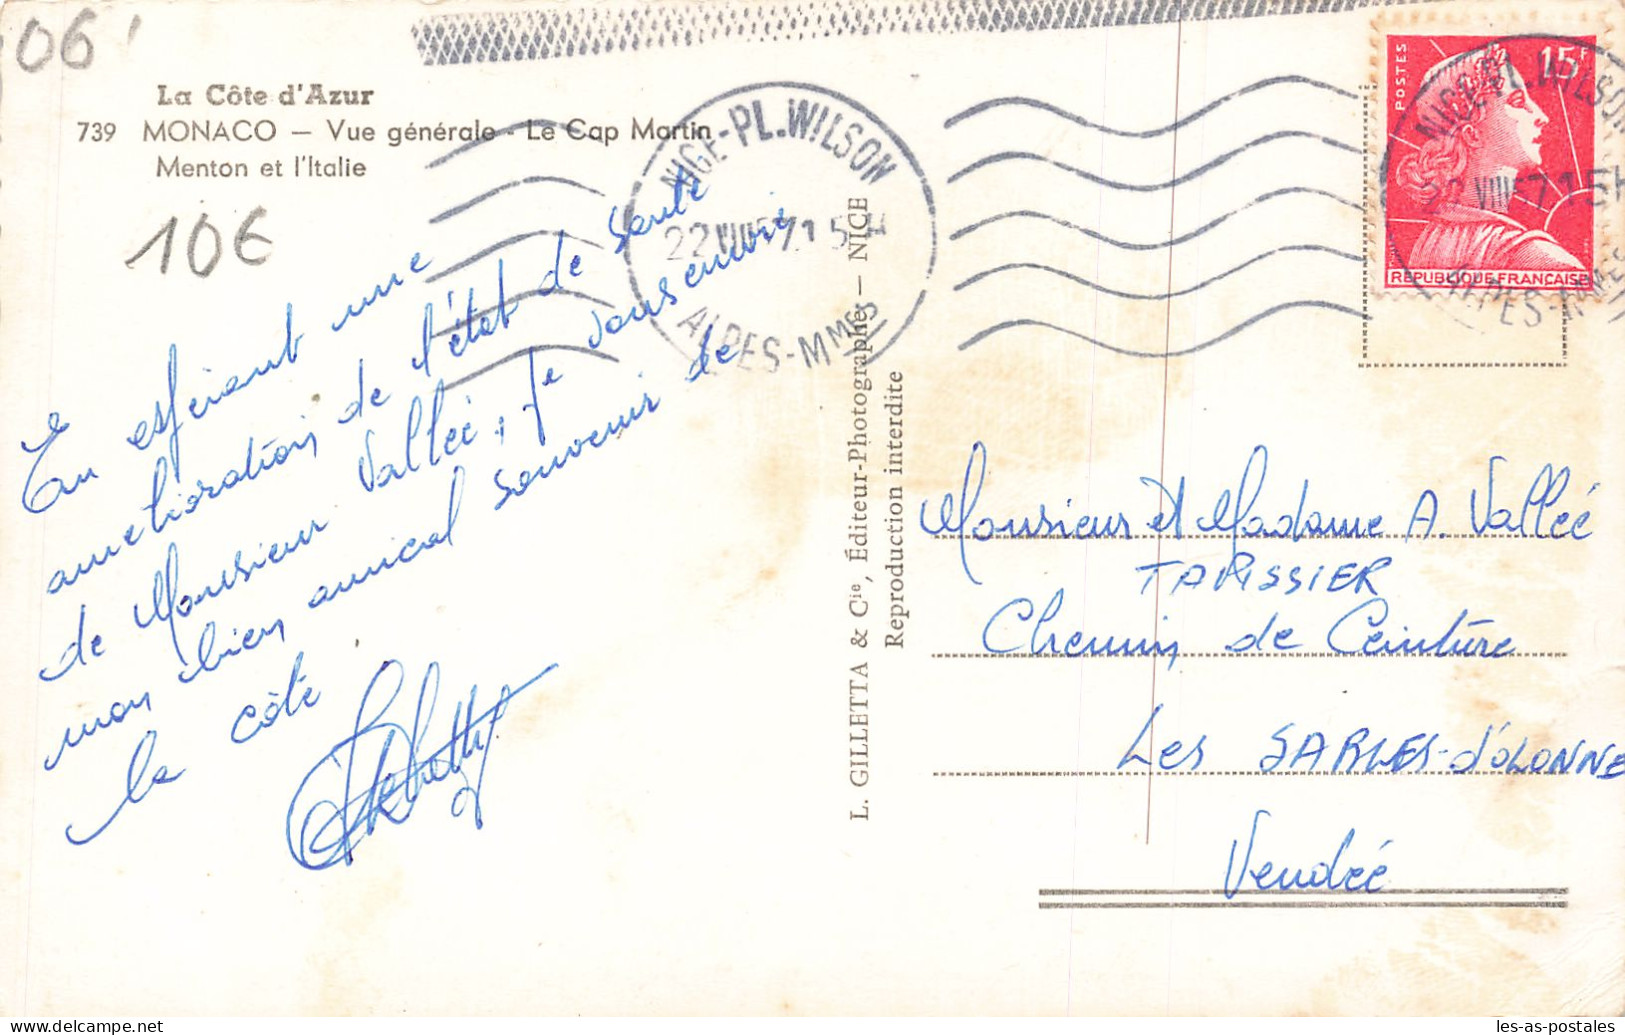 06
La Côte d'Azur
739 MONACO — Vue générale - Le Cap Martin
Menton et l'Italie
10€
NICE-PL.WILSON
22 VIII 57 15H
ALPES-MMES
POSTES
15F
REPUBLIQUE FRANÇAISE
NICE-PL.WILSON
22 VIII 57 15H
ALPES-MMES
En espérant une
amélioration de l'état de santé
de Monsieur Vallée, Je vous envoie
mon bien amical souvenir de
la côte
L. GILLETTA & Cie, Éditeur-Photographe — NICE
Reproduction interdite
Monsieur et Madame A. Vallée
TAPISSIER
Chemin de Ceinture
Les SABLES-d'OLONNE
Vendée
les-as-postales